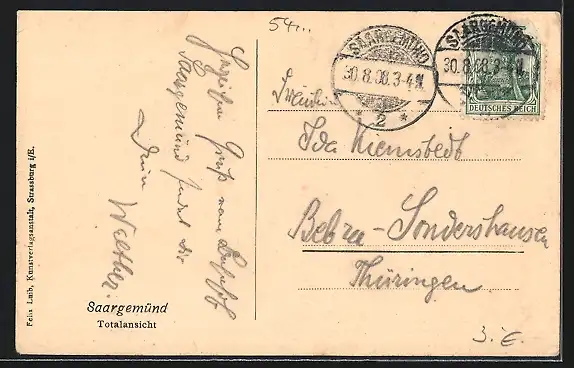 54...
Herzlichen Gruß vom Bahnhof
Saargemünd sendet dir
Dein
Walther.
SAARGEMÜND
30.8.08.3-4N.
* 2 *
SAARGEMÜND
30.8.08.3-4N.
DEUTSCHES REICH
Fräulein
Ida Kiemstedt
Bebra-Sondershausen
Thüringen
Saargemünd
Totalansicht
Felix Luib, Kunstverlagsanstalt, Strassburg i/E.
3. E.